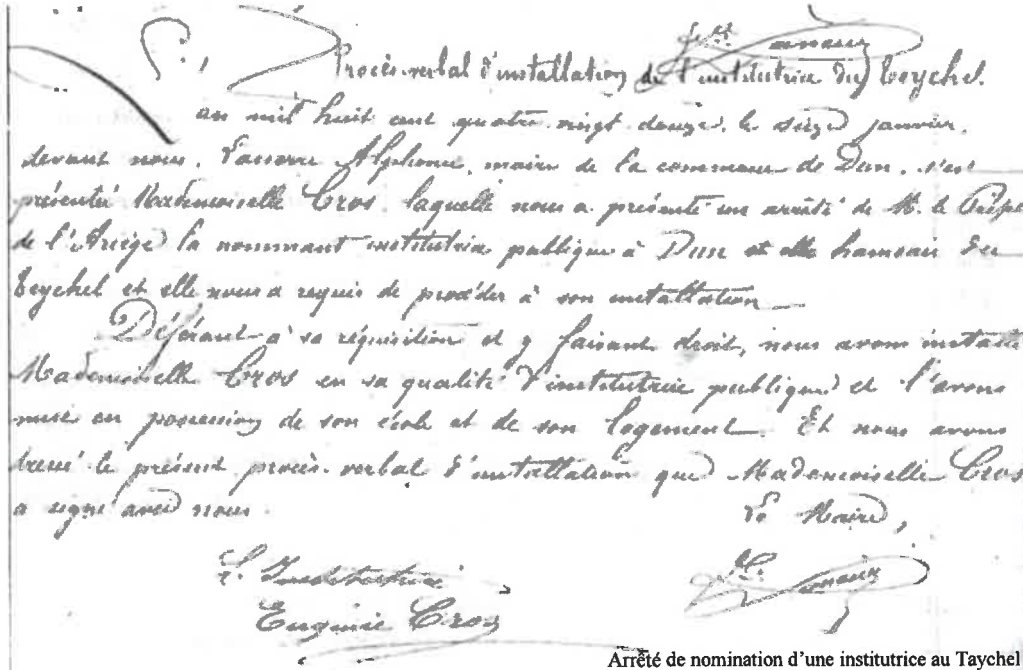 Procès-verbal d'installation de l'institutrice du Teychel.
L'an mil huit cent quatre vingt douze, le seize janvier,
devant nous, Alphonse, maire de la commune de Dun, s'est
présentée Mademoiselle Cros, laquelle nous a présenté un arrêté de M. le Préfet
de l'Ariège la nommant institutrice publique à Dun et elle hameau du
Teychel et elle nous a requis de procéder à son installation
Déférant à sa réquisition et y faisant droit, nous avons installé
Mademoiselle Cros en sa qualité d'institutrice publique et l'avons
mise en possession de son école et de son logement. Et nous avons
dressé le présent procès-verbal d'installation que Mademoiselle Cros
a signé avec nous.
Le Maire,
L'Institutrice
Eugénie Cros
Arrêté de nomination d'une institutrice au Taychel